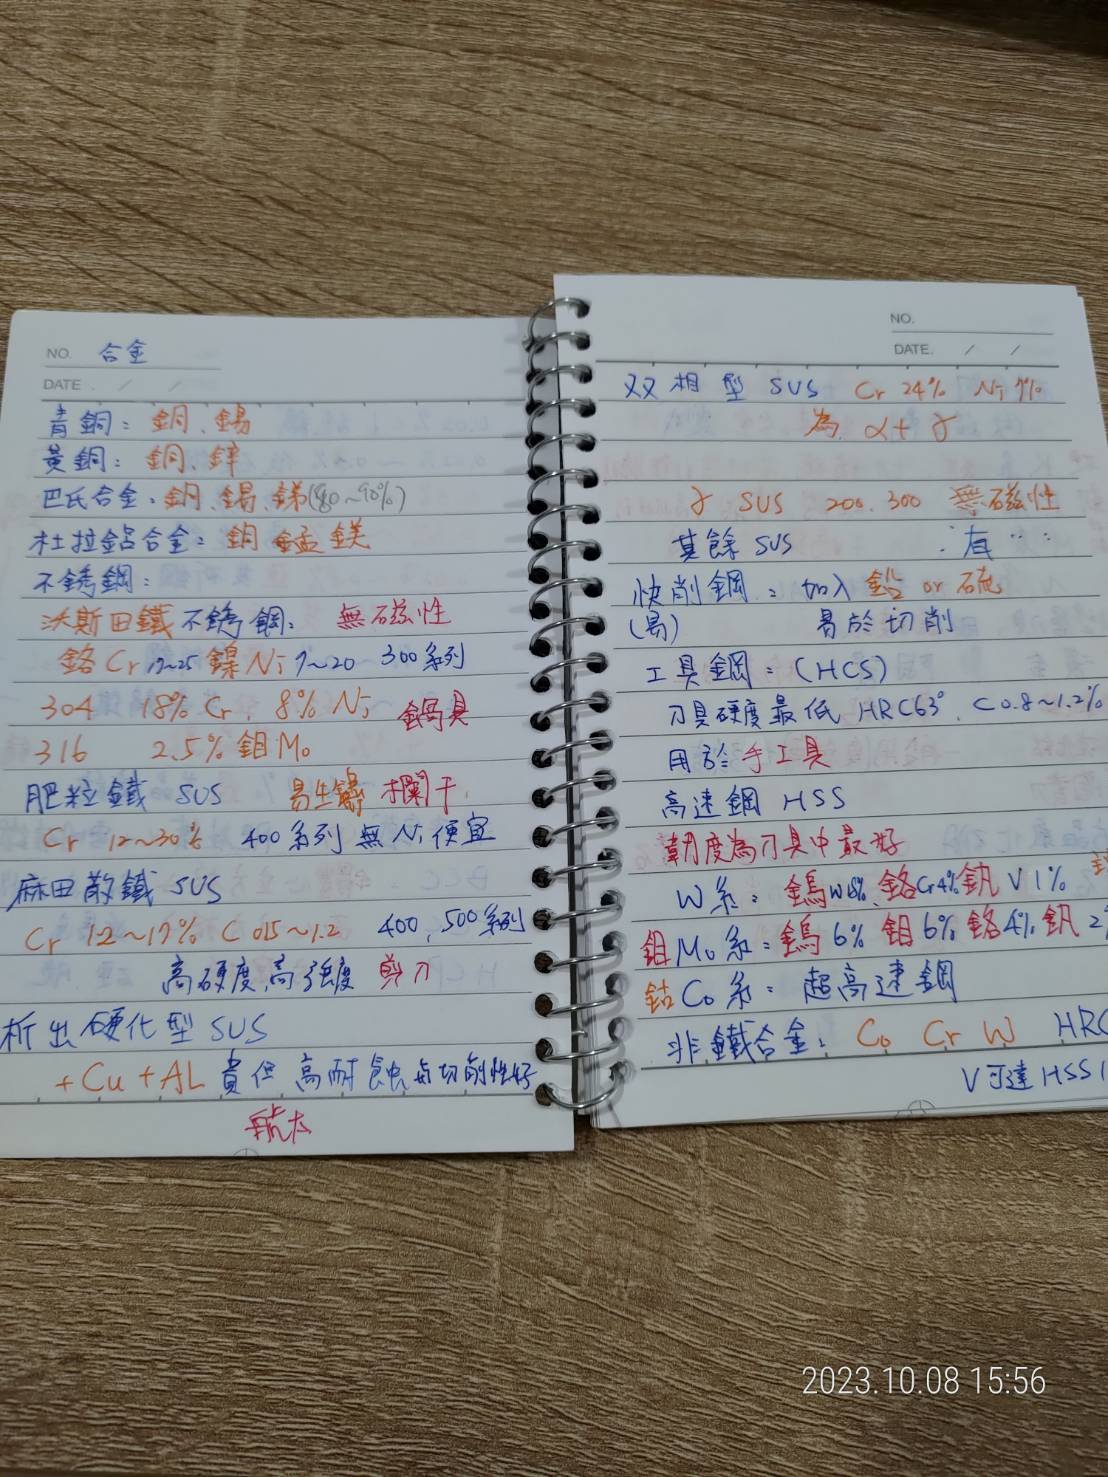 NO. 合金
DATE . / /
青銅：銅、錫
黃銅：銅、鋅
巴氏合金：銅、錫、銻(80~90%)
杜拉鋁合金：銅 錳 鎂
不銹鋼：
沃斯田鐵不銹鋼： 無磁性
鉻Cr 17~25 鎳Ni 7~20 300系列
304 18% Cr. 8% Ni 鍋具
316 2.5%鉬Mo
肥粒鐵 SUS 易生鏽 欄干
Cr 12~30% 400系列 無Ni便宜
麻田散鐵 SUS
Cr 12~17% C 0.15~1.2 400, 500系列
高硬度,高強度 剪刀
析出硬化型SUS
+Cu+AL 貴但 高耐蝕 切削性好
航太
NO.
DATE. / /
双相型 SUS Cr 24% Ni 7%
為 α+γ
γ SUS 200. 300 無磁性
其餘SUS 有〃
快削鋼：加入鉛 or 硫
(易) 易於切削
工具鋼：(HCS)
刀具硬度最低 HRC63° C 0.8~1.2%
用於手工具
高速鋼 HSS
韌度為刀具中最好
W系：鎢W18%鉻Cr4%釩V1%
鉬Mo系：鎢6%鉬6%鉻4%釩2
鈷Co系：超高速鋼
非鐵合金：Co Cr W HRC
V可達HSS
2023.10.08 15:56